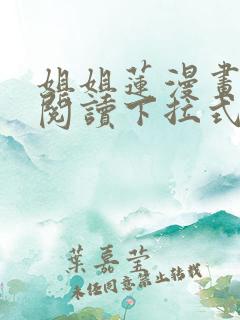 姐姐蓮漫畫
閱讀下拉式
葉嘉莹
未经同意禁止转载